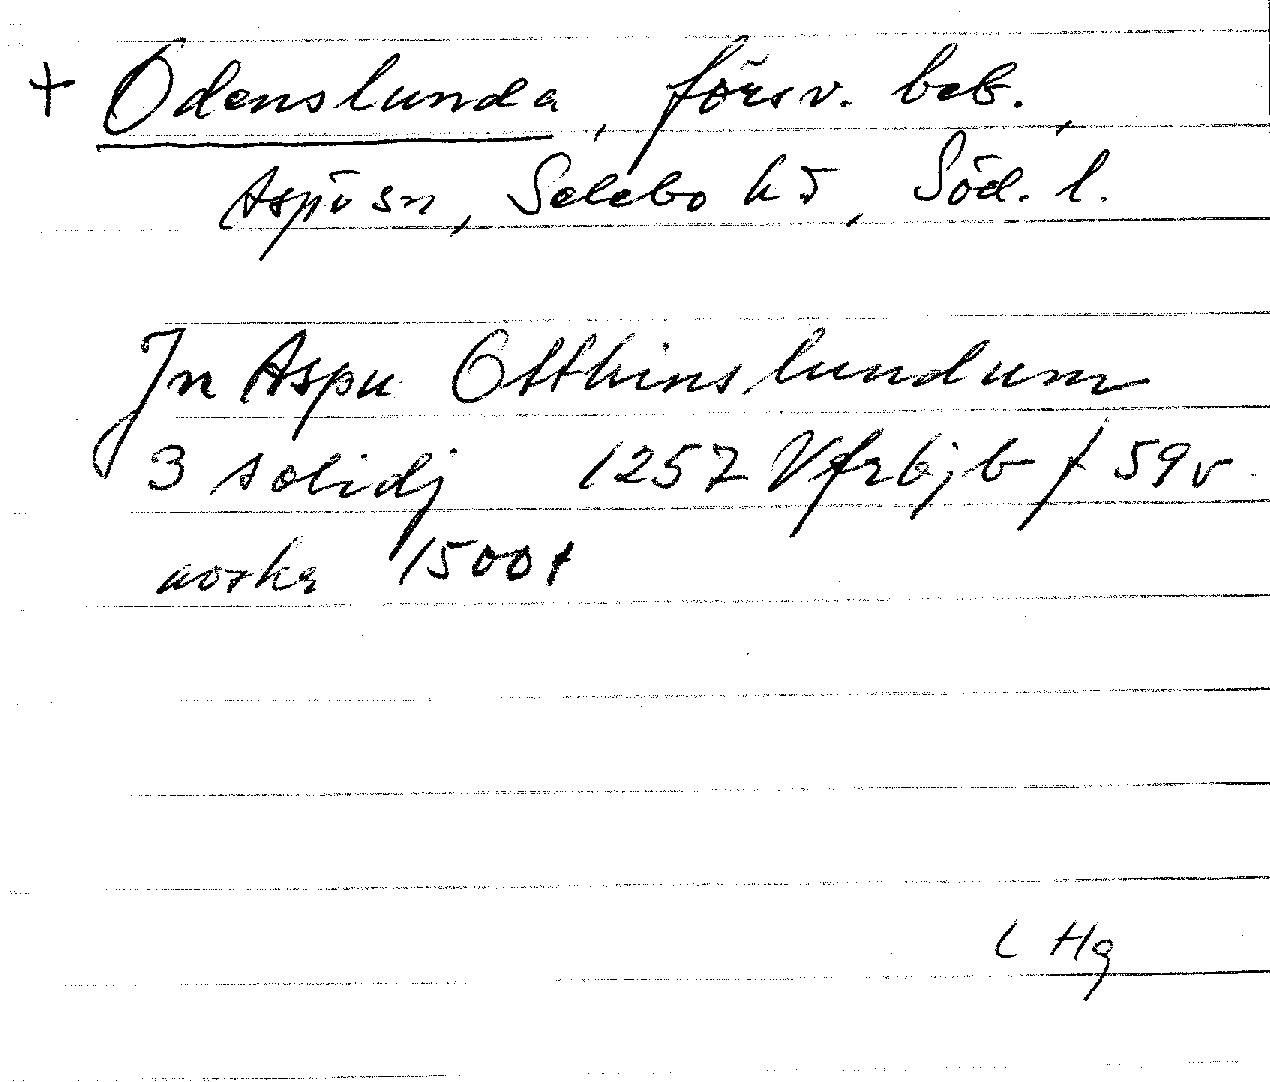 + Odenslunda, försv. beb.,
Aspö sn, Selebo hd, Söd. l.
In Aspu Otthinslundum
3 solidj 1257 Vfrbjb f 59v
avskr 1500t
L Hg